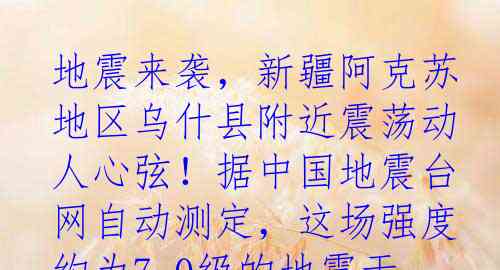 地震来袭，新疆阿克苏
地区乌什县附近震荡动
人心弦！据中国地震台
网自动测定，这场强度
约为7.0级的地震于